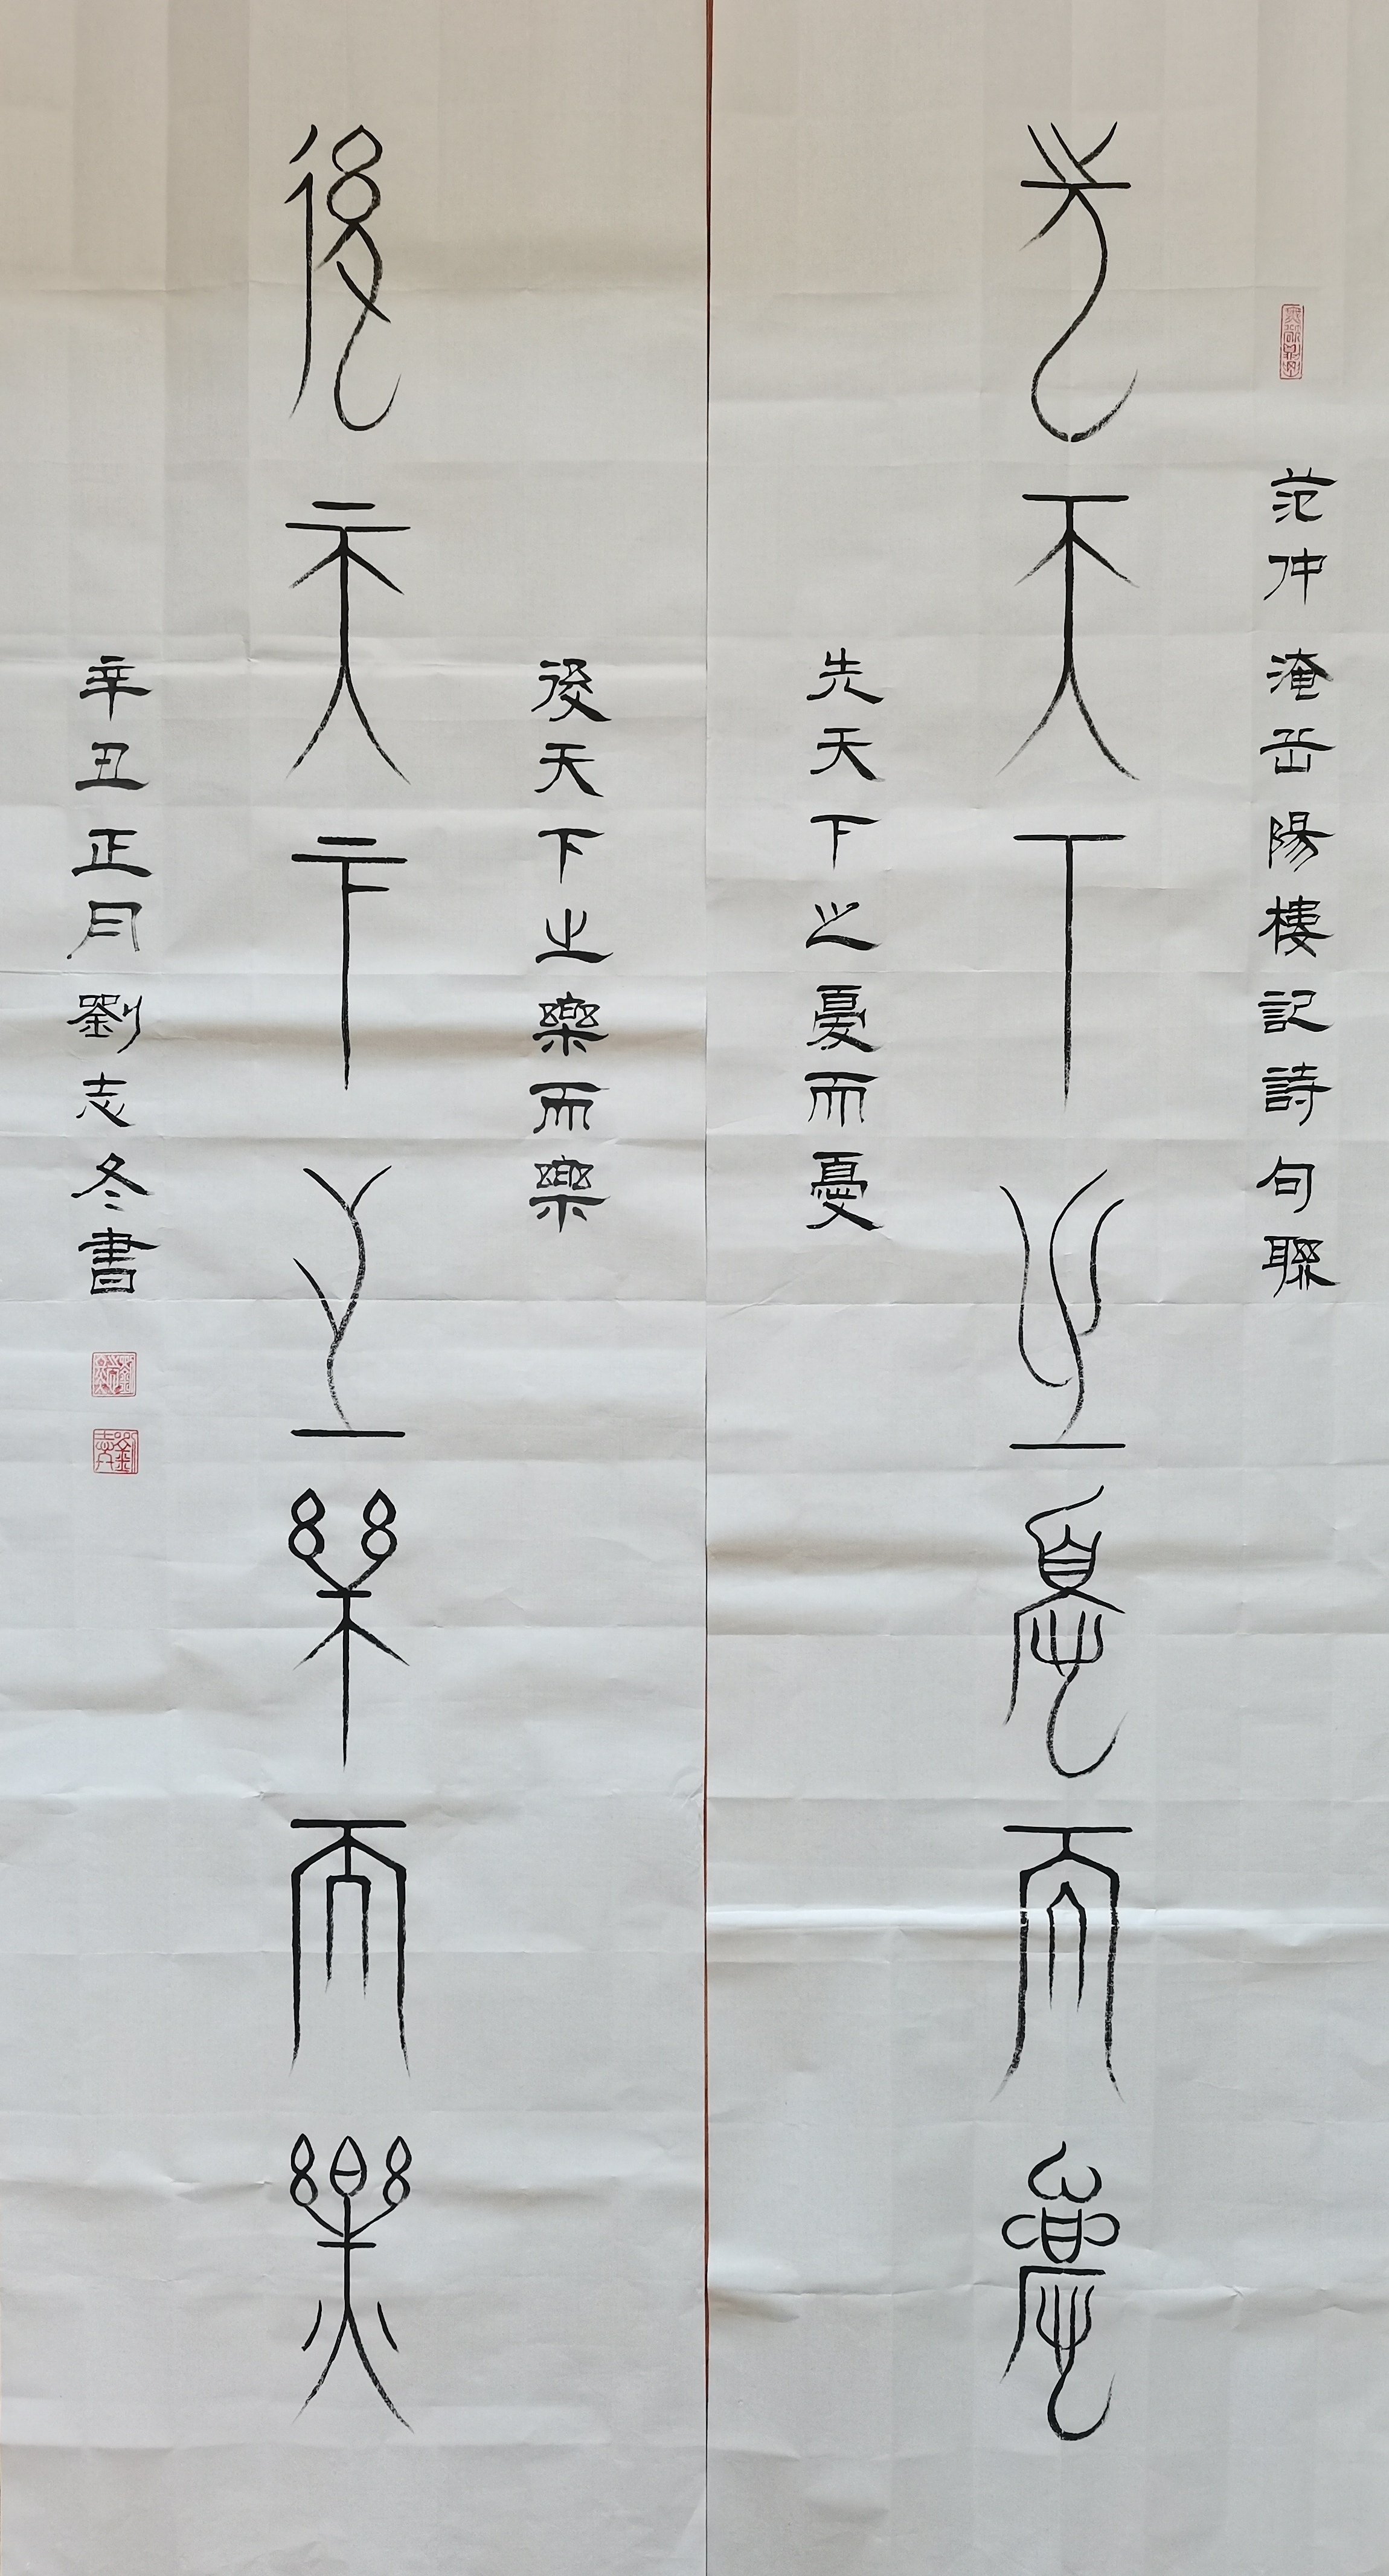 范仲淹岳陽樓記詩句聯
先天下之憂而憂
先天下之憂而憂
後天下之樂而樂
後天下之樂而樂
辛丑正月劉志冬書